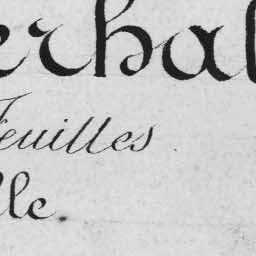 erbal
Feuilles
lle.